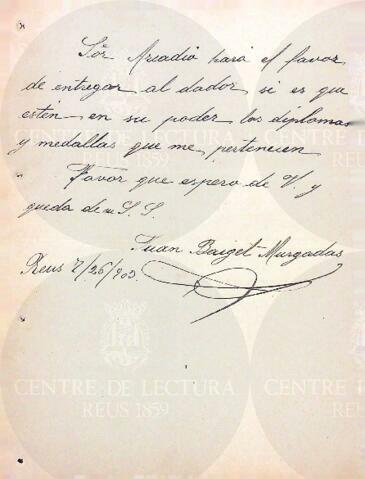 Sor Arcadio hará el favor
de entregar al dador si es que
estén en su poder los diplomas
y medallas que me pertenecen
Favor que espero de V. y
queda de su S. S.
Juan Baiget Murgadas
Reus 7/26/903.
CENTRE DE LECTURA
REUS 1859
CENTRE DE LECTURA
REUS 1859
CENTRE DE LECTURA
REUS 1859
CENTRE DE
REUS